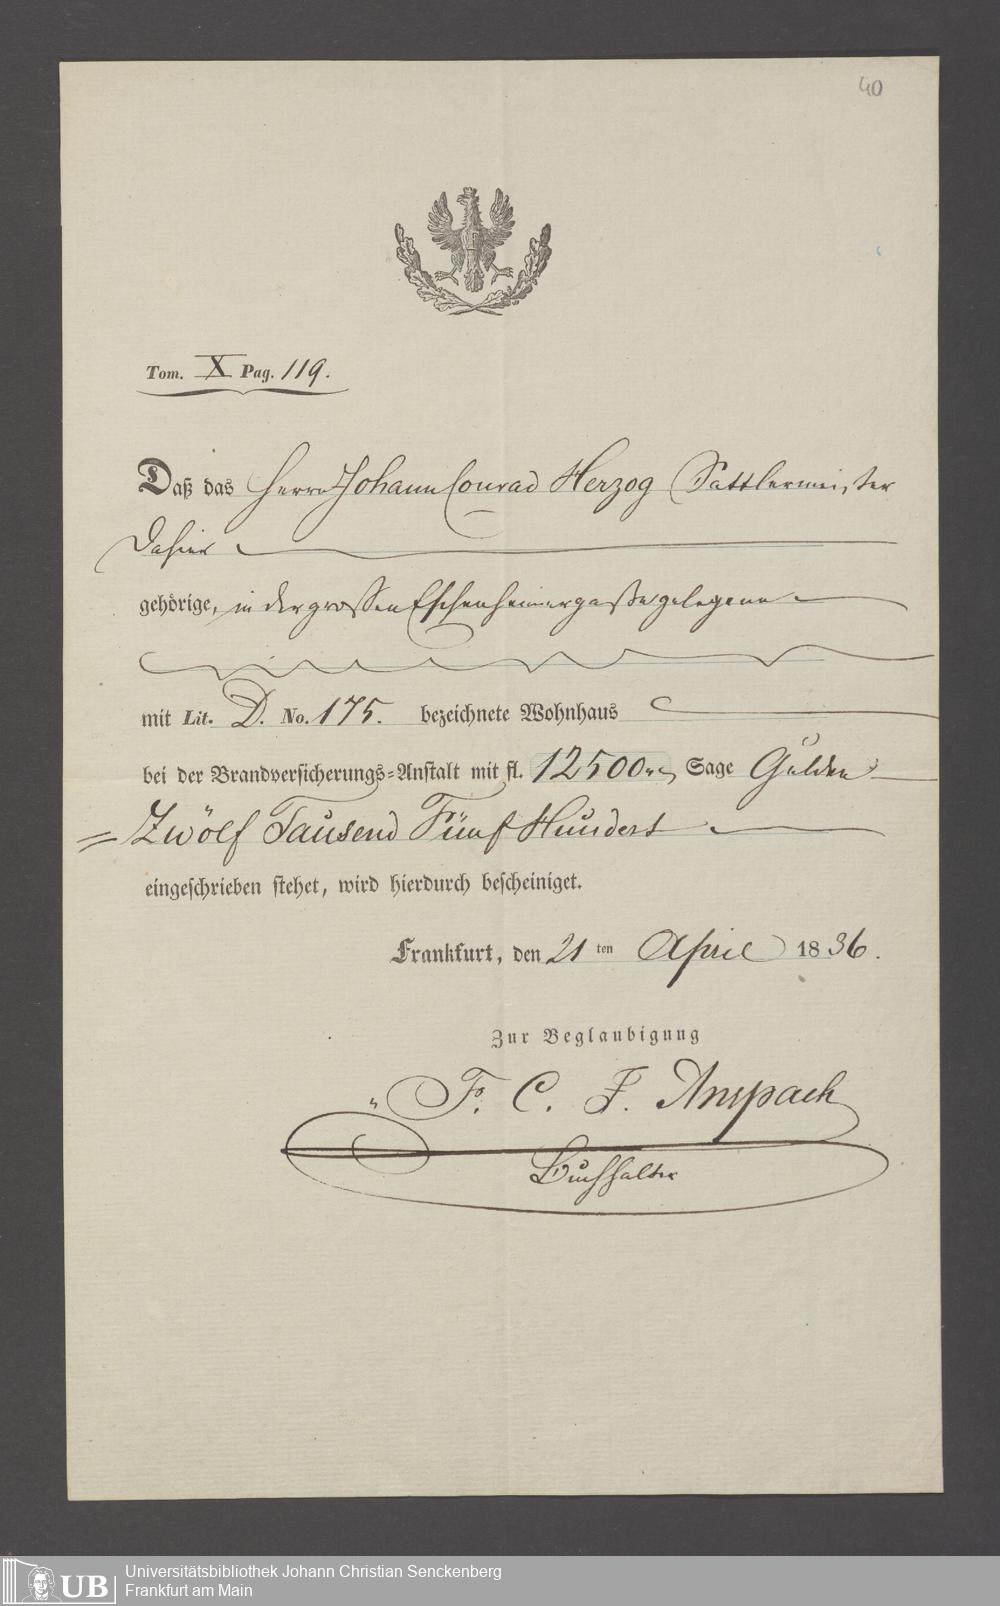 40
Tom. X Pag. 119.
Daß das Herrn Johann Conrad Herzog Sattlermeister
dahier
gehörige, in der großen Eschenheimergaße gelegene
mit Lit. D. No. 175. bezeichnete Wohnhaus
bei der Brandversicherungs=Anstalt mit fl. 12500 Sage Gulden
Zwölf Tausend Fünf Hundert
eingeschrieben stehet, wird hierdurch bescheiniget.
Frankfurt, den 21 ten April 1836.
Zur Beglaubigung
F. C. F. Anspach
Buchhalter
UB Universitätsbibliothek Johann Christian Senckenberg
Frankfurt am Main